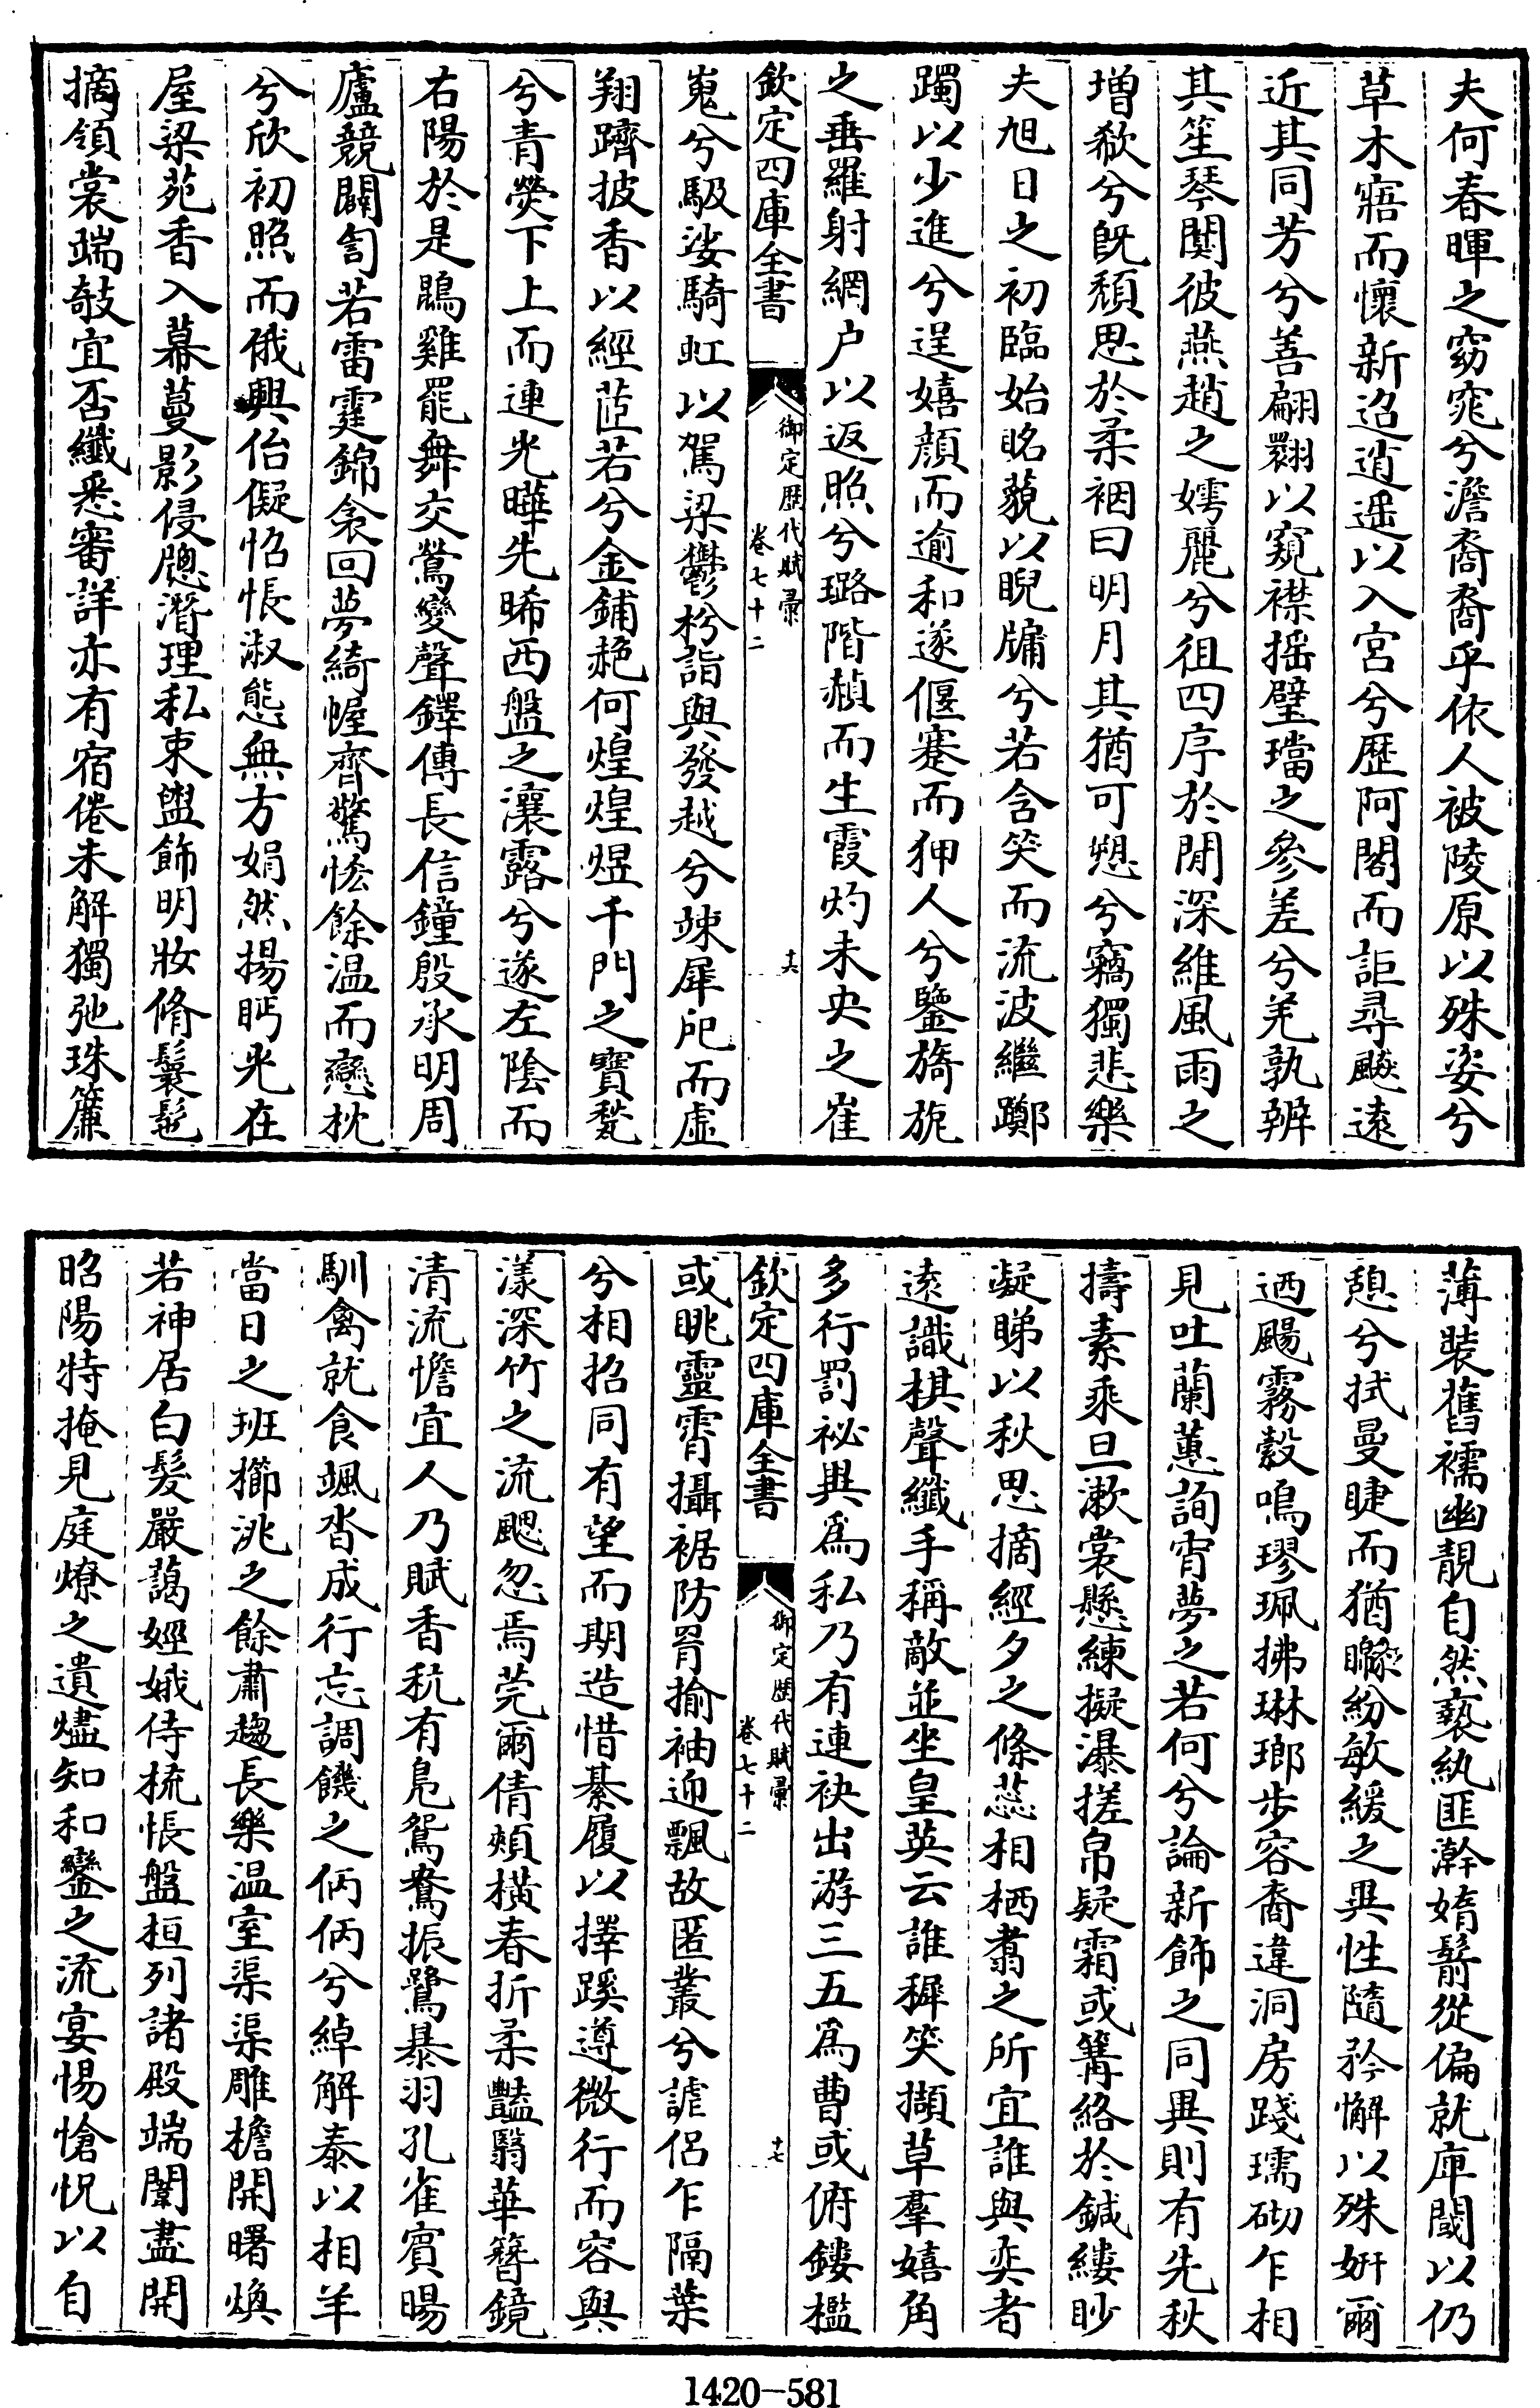 夫何春暉之窈窕兮澹裔裔乎依人被陵原以殊姿兮
草木寤而懷新迢逍遥以入宫兮歴阿閣而詎尋颷遠
近其同芳兮善翩翾以窺襟摇璧璫之參差兮羌孰辨
其笙琴闃彼燕趙之嫮麗兮徂四序於閒深維風雨之
増欷兮旣頽思於柔裀曰明月其猶可愬兮竊獨悲樂
夫旭日之初臨始眳藐以睨牖兮若含笑而流波繼躑
躅以少進兮逞嬉顔而逾和遂偃蹇而狎人兮鑒旖旎
之垂羅射網户以返照兮璐階赬而生霞灼未央之崔
欽定四庫全書
御定歴代賦彚
卷七十二
十六
嵬兮馺娑騎虹以駕梁鬱枍詣與發越兮竦犀戺而虚
翔躋披香以經茝若兮金鋪赩何煌煌煜千門之寶甃
兮青熒下上而連光曄先晞西盤之瀼露兮遂左陰而
右陽於是鵾雞罷舞交鶯變聲鐸傳長信鐘殷承明周
廬競闢訇若雷霆錦衾回夢綺幄齊驚恡餘温而戀枕
兮欣初照而俄興佁儗怊悵淑態無方娟然揚眄光在
屋梁苑香入幕蔓影侵牕潛理私束盥飾明妝脩鬟髢
摘領裳端攲宜否纖悉審詳亦有宿倦未解獨弛珠簾
薄裝舊襦幽靚自然褻紈匪澣媠鬋從偏就庘閾以仍
憩兮拭曼睫而猶矊紛敏緩之異性隨矜懈以殊姸爾
迺颺霧縠鳴璆珮拂琳瑯步容裔違洞房踐瓀砌乍相
見吐蘭蕙詢宵夢之若何兮論新飾之同異則有先秋
擣素乘旦漱裳懸練擬瀑搓帛疑霜或篝絡於鍼縷眇
凝睇以秋思摘經夕之條蕊相栖翥之所宜誰與奕者
遠識棋聲纖手稱敵並坐皇英云誰穉笑擷草羣嬉角
多行罰祕與爲私乃有連袂出游三五爲曹或俯鏤檻
欽定四庫全書
御定歴代賦彚
卷七十二
十七
或眺靈霄攝裾防罥揄袖迎飄故匿叢兮謔侣乍隔葉
兮相招同有望而期造惜綦履以擇蹊遵微行而容與
漾深竹之流颸忽焉莞爾倩頰橫春折柔豔翳華簪鏡
清流憺宜人乃賦香秔有鳧鴛鴦振鷺暴羽孔雀賓暘
馴禽就食颯沓成行忘調饑之㑂㑂兮綽解泰以相羊
當日之班擳洮之餘肅趨長樂温室渠渠雕檐開曙煥
若神居白髪嚴藹娙娥侍梳悵盤桓列諸殿端闈盡開
昭陽特掩見庭燎之遺燼知和鑾之流宴惕愴怳以自
1420-581